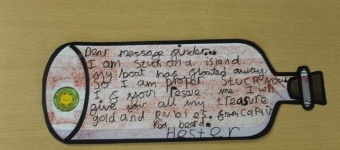 Dear message finder...
I am stuck on a island
my boat has floated away
So I am proper stuck
If you rescue me I will
give you all my treasure
gold and rubies. from captin
Red beard.
Hester